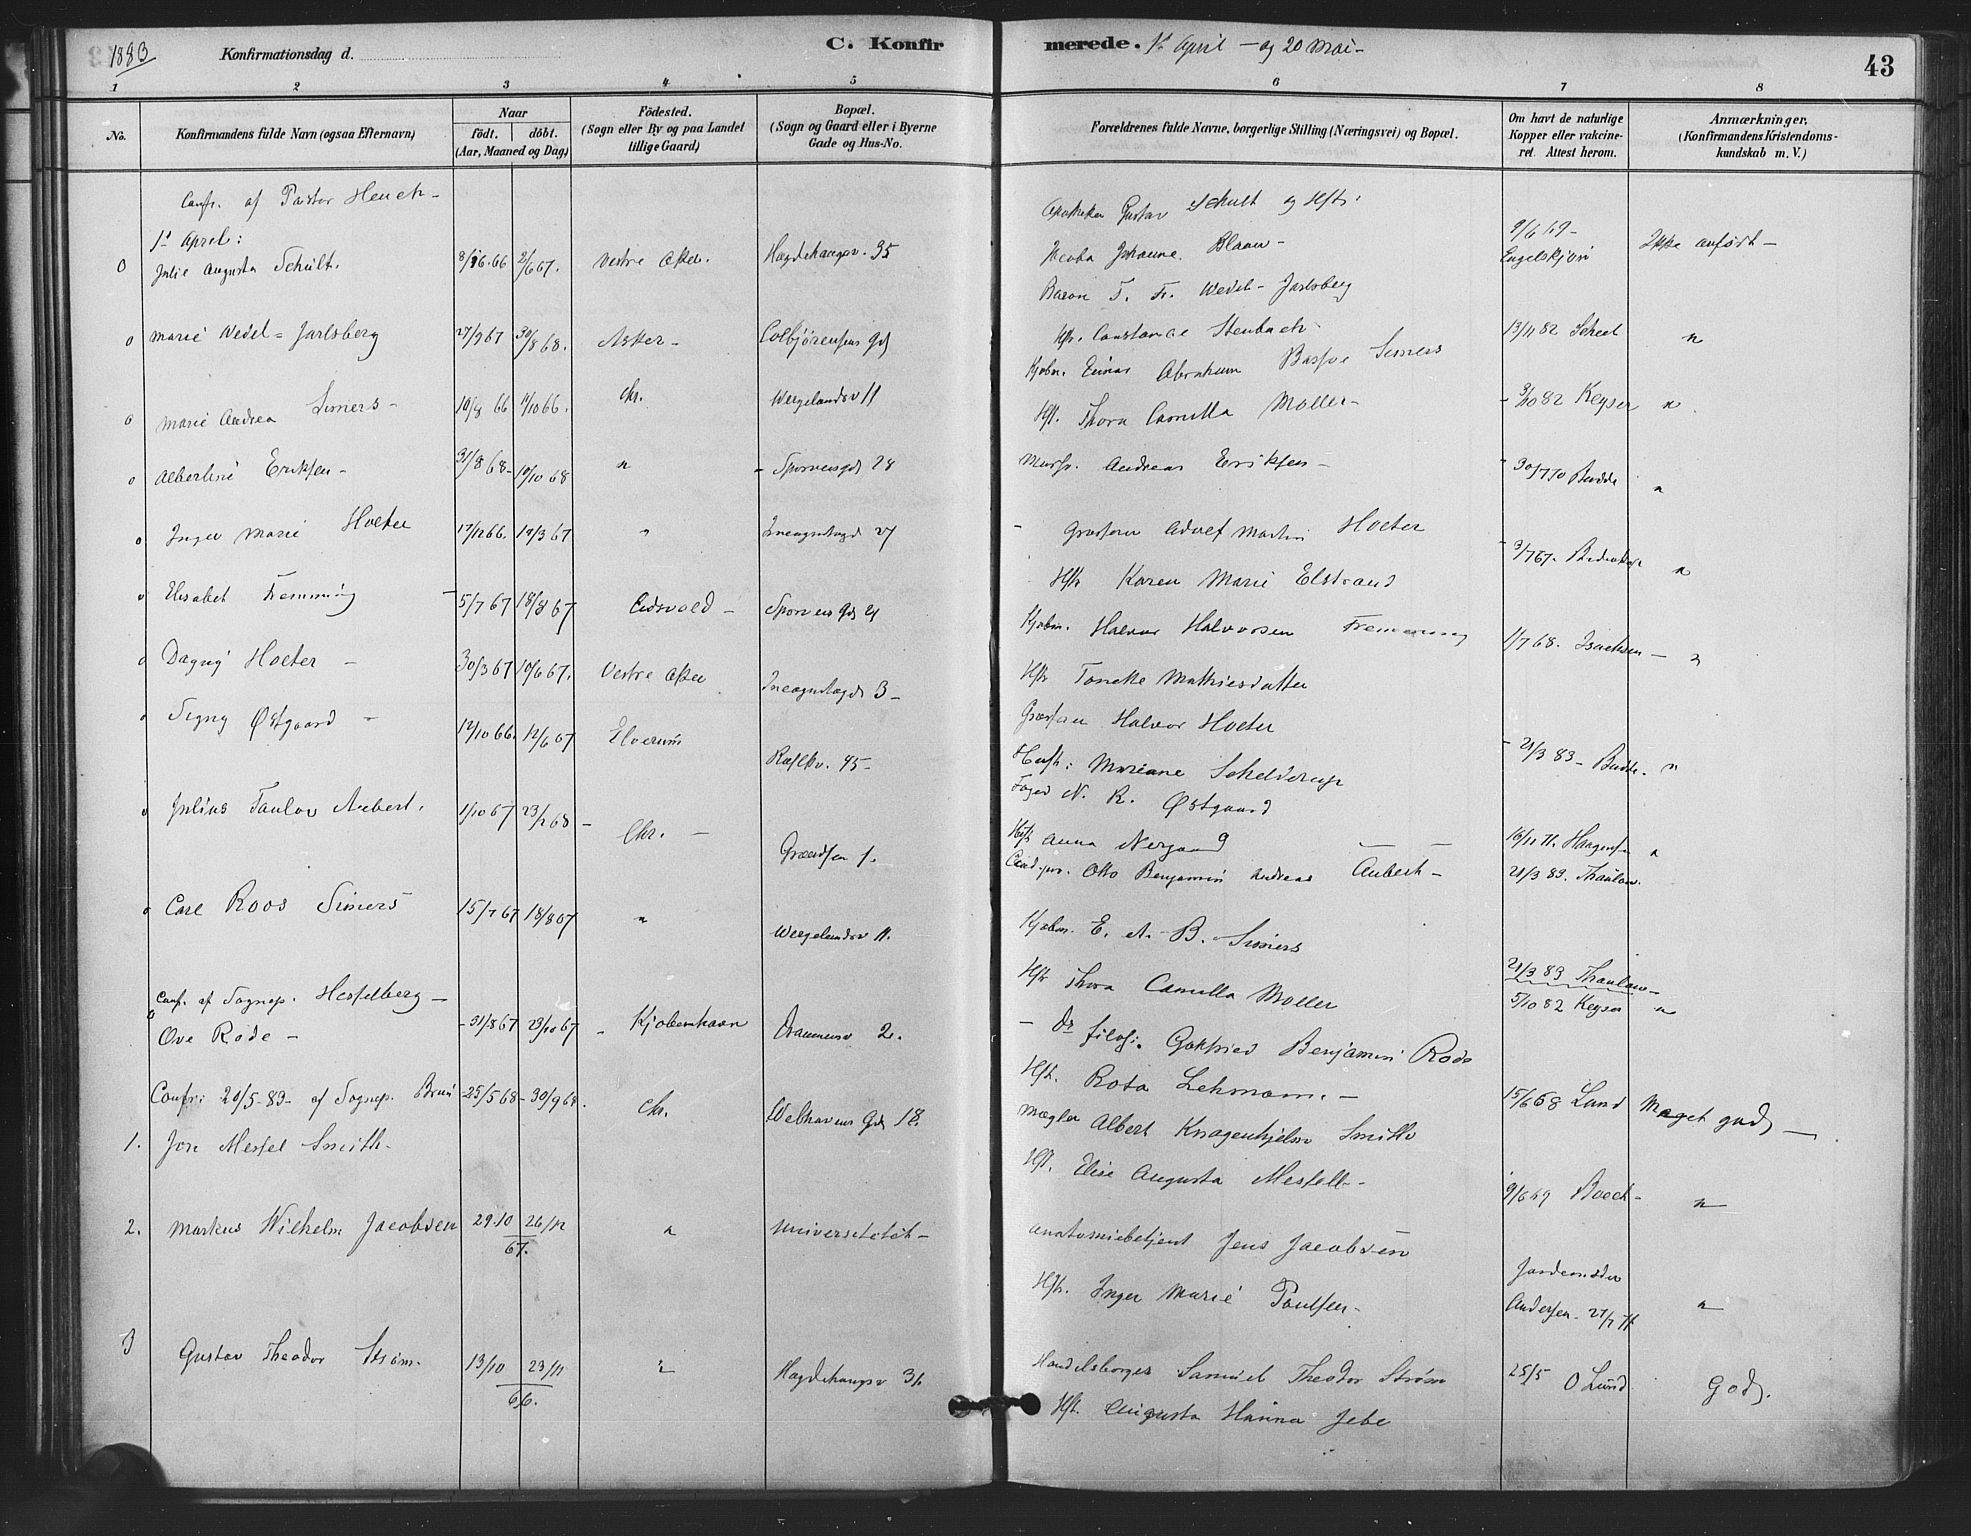 1883 Konfirmationsdag d. C. Konfirmerede. 1st April – og 20 Mai – 43
1 2 3 4 5 6 7 8
No. Konfirmandens fulde Navn (ogsaa Efternavn) Naar födt. döbt. (Aar, Maaned og Dag) Födested. (Sogn eller By og paa Landet tillige Gaard) Bopæl. (Sogn og Gaard eller i Byerne Gade og Hus-No. Forældrenes fulde Navne, borgerlige Stilling (Næringsvei) og Bopæl. Om havt de naturlige Kopper eller vakcineret. Attest herom. Anmærkninger, (Konfirmandens Kristendomskundskab m. V.)
Confr. af Pastor Heuch –
1st April:
Apotheker Gustav Schult og Hst:
0 Julie Augusta Schult. 2/6 67. Vestre Aker. Hægdehaugsv. 35 Jacoba Johanne Blaauw – 9/6 69 – Ikke anført –
Baron F. Fr. Wedel-Jarlsberg
0 Marie Wedel=Jarlsberg 27/9 67 30/8 68. Asker – Colbjørensens Gd Hst. Constance Steubach 13/11 82 Scheel "
Kjøbm. Einar Abraham Simers
0 Marie Andrea Simers – 10/8 66 Chr. Wergelandsv 11 Hst. Thora Camilla Møller – 3/10 82 Keyser "
0 Albertine Eriksen – 31/8 68 – 10/10 68 " Sporveisgd 28 Andreas Eriksen – 30/7 70 Budde "
0 Inger Marie Hoeter 17/12 66. 10/3 67 " Incognitogd 27 Adolf Martin Hoeter
Hst Karen Marie Elstrand 3/7 67. "
0 Elisabet Fremming – 5/7 67 18/8 67 Eidsvold – Sporveis Gd 21 Kjøbm. Halvor Halvorsen Fremming
0 Dagny Hoeter – 30/3 67 10/6 67. Vestre Aker Incognitogd 3 – Hst Tonette Mathiesdatter 1/7 68. Isachsen – "
Halvor Hoeter
0 Signy Østgaard – 12/10 66. 12/6 67 Elverum 45 – Hust: Mariane Schelderup 21/3 83 – Budde. "
Foged N. R. Østgaard
0 Julius Taulov Aubert. 1/10 67 23/2 68 – Chr. – Grændsen 1. Hst Anna Nergaard 16/11 71. Haagensen "
Cand. jur. Otto Benjamin Andreas Aubert – 21/3 83. Thaulow.
0 Carl Roos Simers 15/7 67 18/8 67 " Wergelandsv 11. Kjøbm. E. A. B. Simers
Hst Thora Camilla Møller 21/3 83 Thaulow –
Conf. af Sognep. Hesselberg – 5/10 82 Keyser "
0 Ove Rode – – 31/8 67 23/10 67 – Kjøbenhavn Drammensv 2. – Dr filos. Gotfried Benjamin Rode
Hst. Rosa Lehmann. –
Confr: 20/5-83 – af Sognep. Bruun
1. Jon Mestel Smith. 25/5 68 – 30/9 68. Chr. Welhavens Gd 18. Mægler Albert Knagenhjelm Smith 15/6 68 Lund Meget godt –
Hst. Elise Augusta Mestell –
2. Markus Wilhelm Jacobsen 29.10 26/12 67. " Universitetet – Anatomiebetjent Jens Jacobsen 9/6 69 Boeck – "
Hst. Inger Marie Poulsen – Jordemoder Andersen. "
3 Gustav Theodor Strøm. 13/10 23/11 66. " Hægdehaugsv 36 Handelsborger Samuel Theodor Strøm 25/5 O Lund Godt.
Hst. Augusta Hanna Jebe